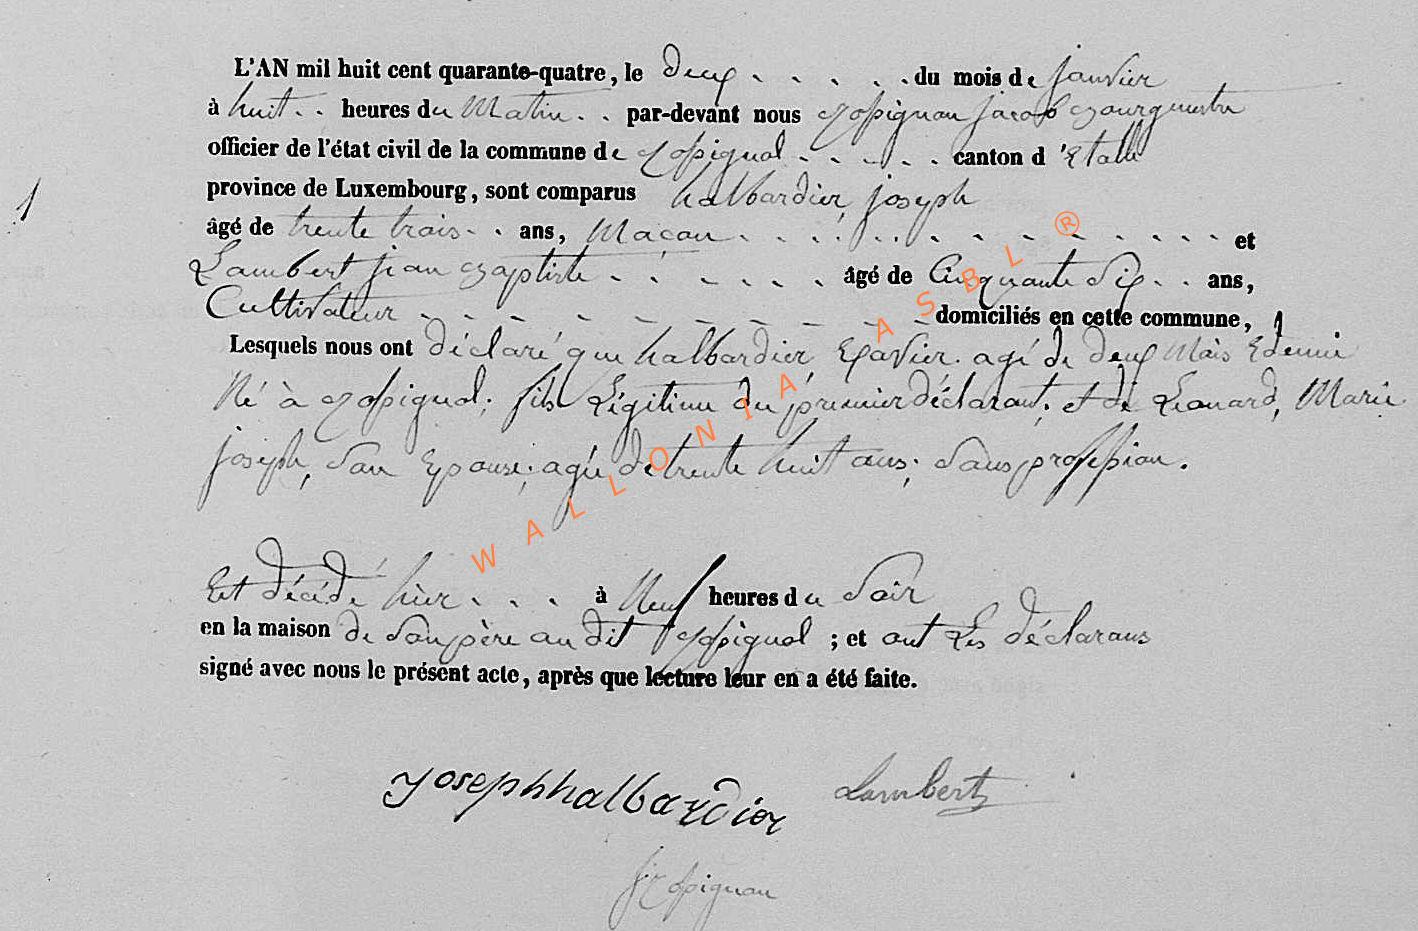 L'AN mil huit cent quarante-quatre, le deux . . . . . du mois de janvier
à huit . . heures du Matin . . par-devant nous Rossignon Jacob Bourgmestre
officier de l'état civil de la commune de Rossignol . . . . . canton d'Etalle
province de Luxembourg, sont comparus halbardier, joseph
âgé de trente trois . . ans, Maçon . . . . . . . . . . . . . et
Lambert jean Baptiste . . . . . . âgé de Cinquante Six . . ans,
Cultivateur - - - - - - - - - - domiciliés en cette commune,
Lesquels nous ont déclaré que halbardier, Xavier. agé de deux Mois & demie
Né à Rossignol; fils Légitime du premier déclarant; et de Léonard, Marie
joseph, Son Epouse; agée de trente huit ans; Sans profession.
Est décédé hier . . . à Neuf heures du Soir
en la maison de Son père au dit Rossignol ; et ont Les déclarans
signé avec nous le présent acte, après que lecture leur en a été faite.
Joseph halbardier Lambert
J Rossignon
1
WALLONIA ASBL ®